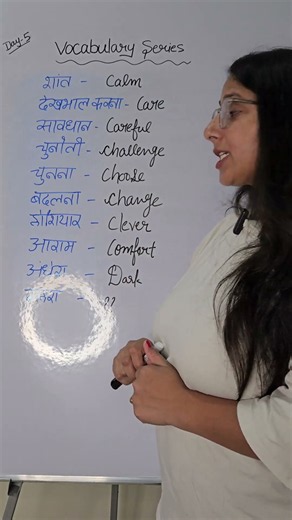 Day-5
Vocabulary Series
शांत - Calm
देखभाल करना - Care
सावधान - Careful
चुनौती - Challenge
चुनना - Choose
बदलना - Change
होशियार - Clever
आराम - Comfort
अंधेरा - Dark
- ??